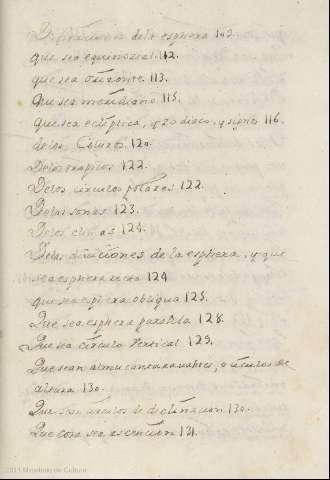 Difiniciones dela esphera 102.
que sea equinozcial. 112.
que sea orizonte. 113.
que sea meridiano 115.
que sea eclyptica, y zodiaco, y signos 116.
delos Coluros 120.
Delos tropicos 122.
Delos circulos polares 122.
Delas sonas 123.
Delos climas 124.
Delas diuiciones de la esphera, y que
sea esphera recta 124
que sea esphera obliqua 125.
Que sea esphera paralela 128.
Que sea circulo Vertical 129.
Que sean almucantaradates, o circulos de
altura 130.
Que sean circulos de declinacion 130.
Que cosa sea ascencion 131.
2011 Ministerio de Cultura